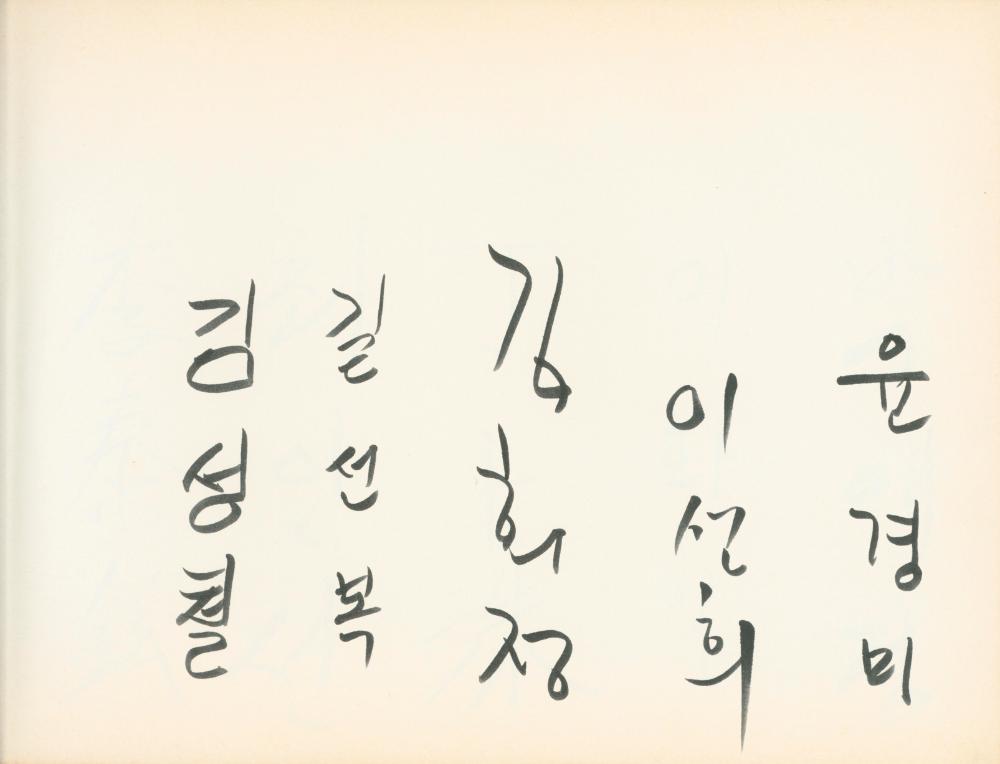 윤경미
이선희
김희정
길선복
김성철